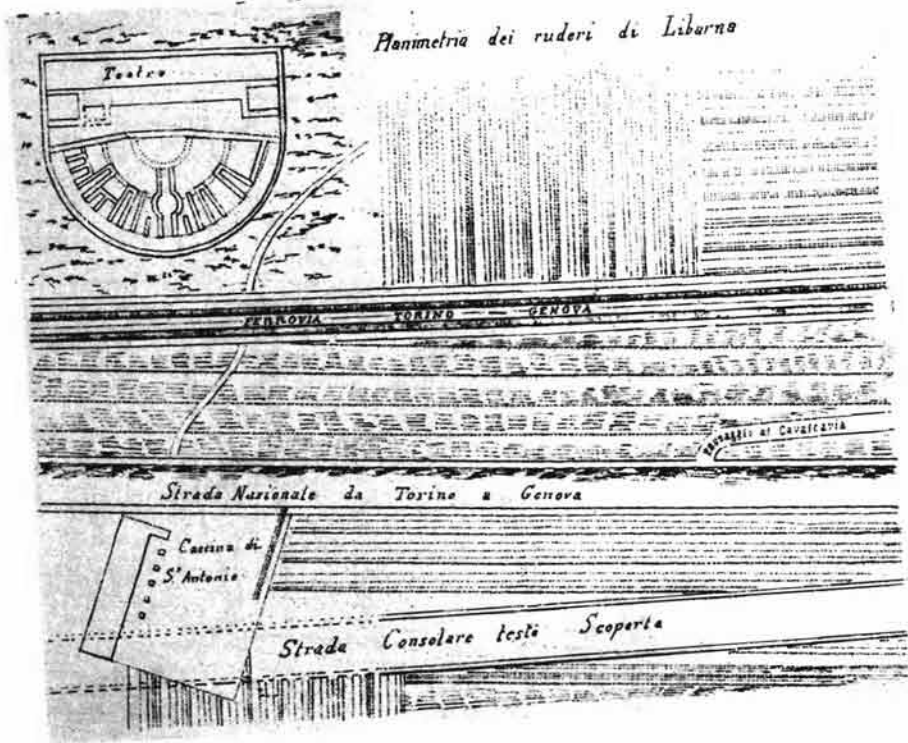 Planimetria dei ruderi di Libarna
Teatro
FERROVIA TORINO — GENOVA
Passaggio al Cavalcavia
Strada Nazionale da Torino a Genova
Cascina di
S.t Antonio
Strada Consolare testè Scoperta